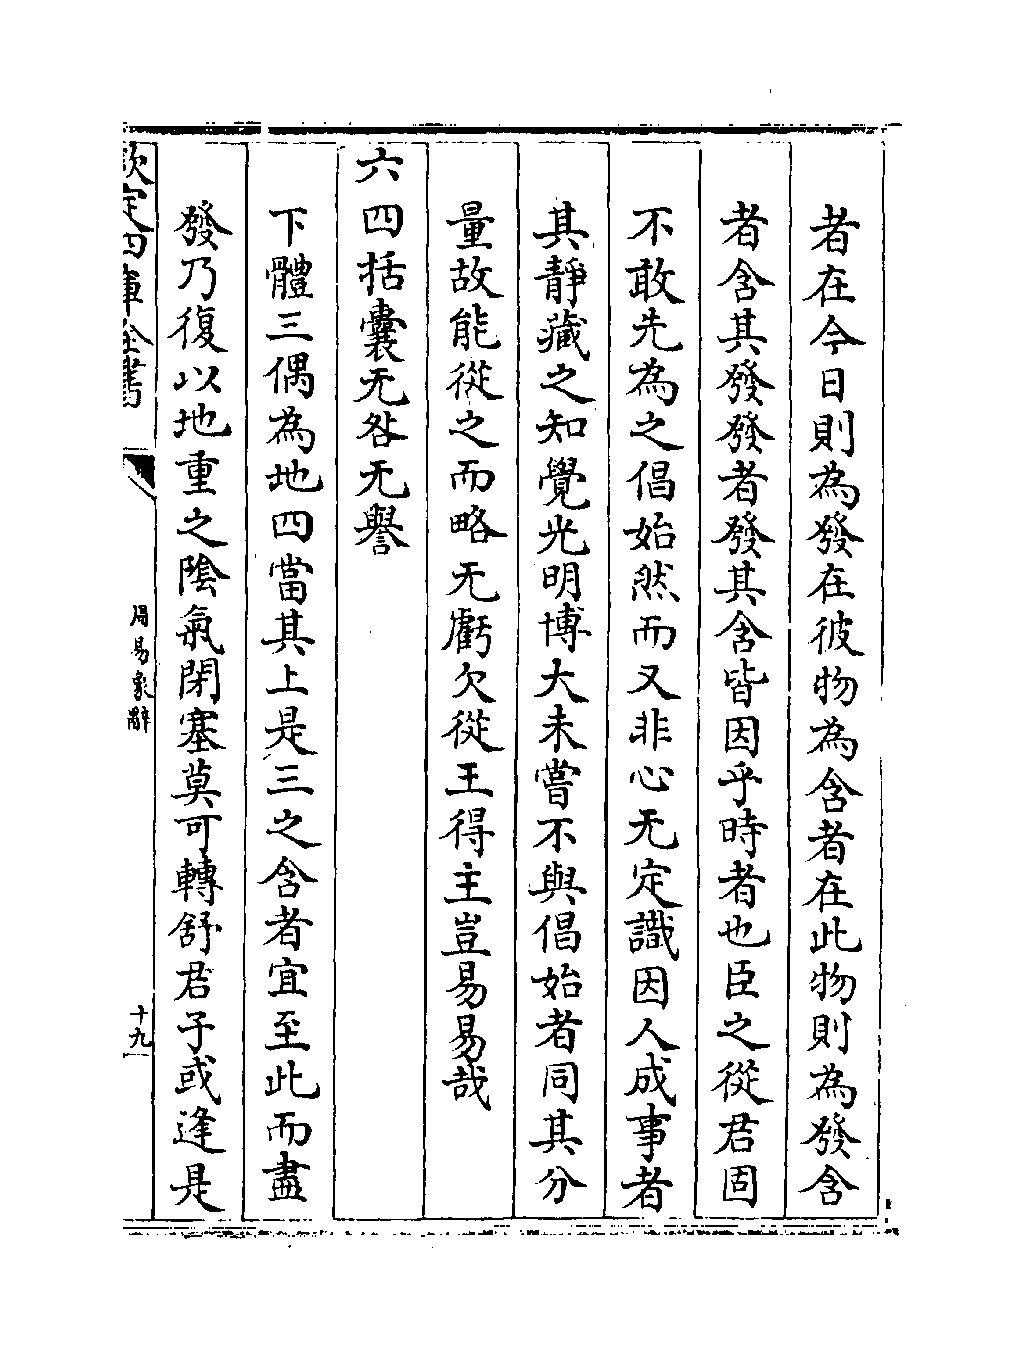 者在今日則為發在彼物為含者在此物則為發含
者含其發發者發其含皆因乎時者也臣之從君固
不敢先為之倡始然而又非心无定識因人成事者
其靜藏之知覺光明博大未嘗不與倡始者同其分
量故能從之而略无虧欠從王得主豈易易哉
六四括囊无咎无譽
下體三偶為地四當其上是三之含者宜至此而盡
發乃復以地重之陰氣閉塞莫可轉舒君子或逢是
欽定四庫全書
周易象辭
十九